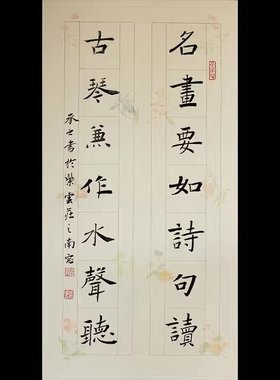 名畫要如詩句讀
古琴兼作水聲聽
承士書於紫雲莊之南窓